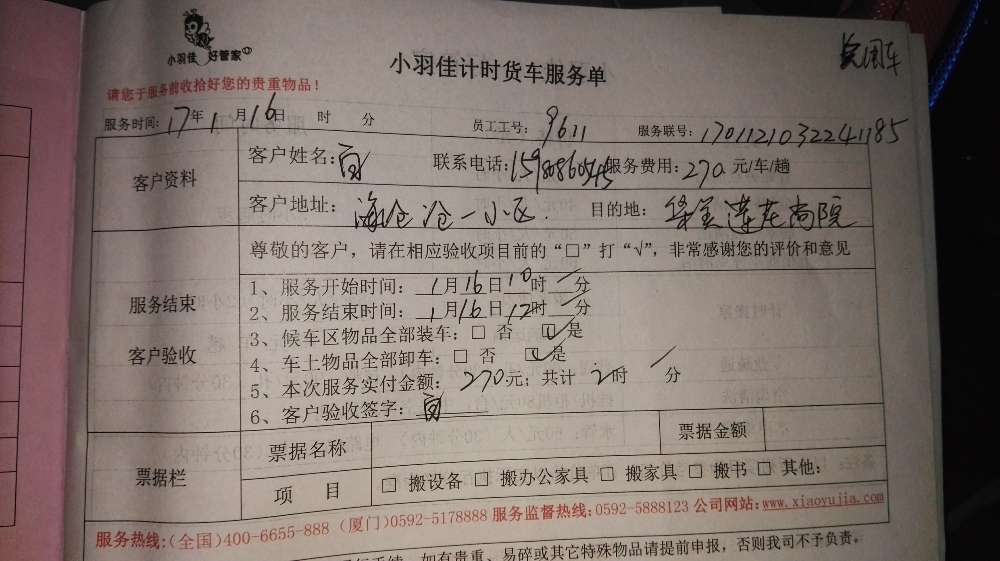 小羽佳 好管家
小羽佳计时货车服务单
请您于服务前收拾好您的贵重物品！
服务时间：17年1月16日 时 分 员工工号：9611 服务联号：1701121032241185
客户资料
客户姓名：白 联系电话： 服务费用：270元/车/趟
客户地址：海沧沧一小区 目的地：莲花尚院
服务结束
客户验收
尊敬的客户，请在相应验收项目前的“□”打“√”，非常感谢您的评价和意见
1、服务开始时间：1月16日10时 分
2、服务结束时间：1月16日12时 分
3、候车区物品全部装车：□ 否 ☑ 是
4、车上物品全部卸车：□ 否 ☑ 是
5、本次服务实付金额：270元；共计 2时 分
6、客户验收签字：白
票据栏
票据名称 票据金额
项 目 □ 搬设备 □ 搬办公家具 □ 搬家具 □ 搬书 □ 其他：
服务热线：（全国）400-6655-888（厦门）0592-5178888 服务监督热线：0592-5888123 公司网站：www.xiaoyujia.com
如有贵重、易碎或其它特殊物品请提前申报，否则我司不予负责。